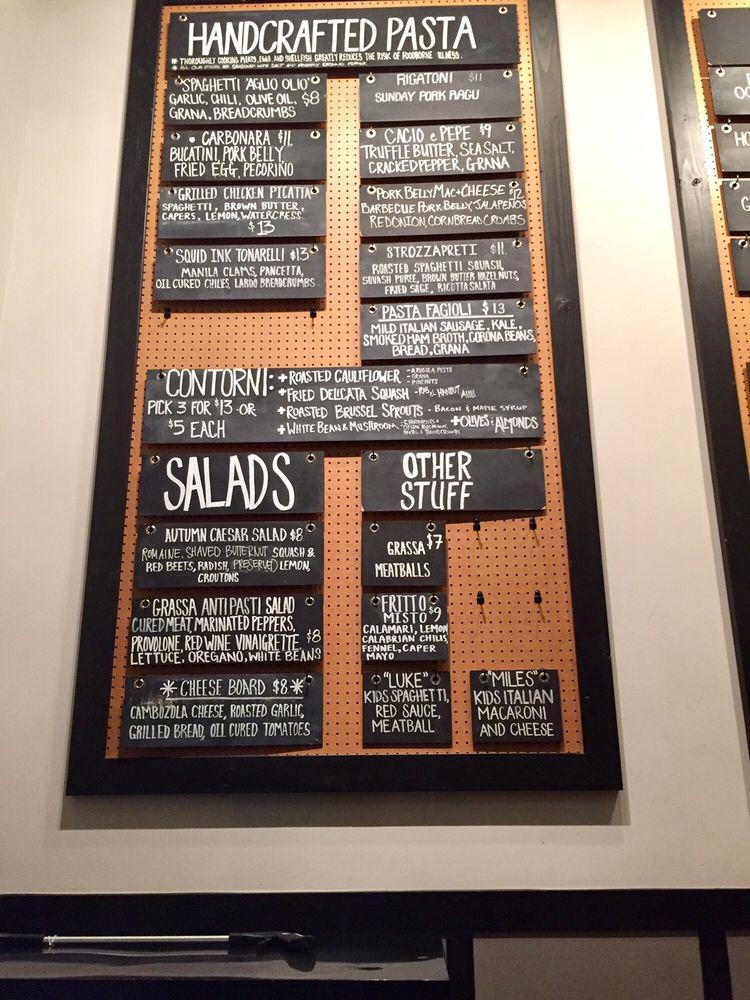 HANDCRAFTED PASTA
* THOROUGHLY COOKING MEATS, EGGS, AND SHELLFISH GREATLY REDUCES THE RISK OF FOODBORNE ILLNESS.
SPAGHETTI 'AGLIO OLIO'
GARLIC, CHILI, OLIVE OIL, $8
GRANA, BREADCRUMBS
CARBONARA $11
BUCATINI, PORK BELLY,
FRIED EGG, PECORINO
GRILLED CHICKEN PICATTA
SPAGHETTI, BROWN BUTTER,
CAPERS, LEMON, WATERCRESS
$13
SQUID INK TONARELLI $13
MANILA CLAMS, PANCETTA,
OIL CURED CHILIES, LARDO BREADCRUMBS
RIGATONI $11
SUNDAY PORK RAGU
CACIO e PEPE $9
TRUFFLE BUTTER, SEA SALT,
CRACKED PEPPER, GRANA
PORK BELLY MAC+CHEESE $12
BARBECUE PORK BELLY, JALAPEÑOS
RED ONION, CORNBREAD CRUMBS
STROZZAPRETI $11
ROASTED SPAGHETTI SQUASH,
SQUASH PUREE, BROWN BUTTER HAZELNUTS,
FRIED SAGE, RICOTTA SALATA
PASTA FAGIOLI $13
MILD ITALIAN SAUSAGE, KALE,
SMOKED HAM BROTH, CORONA BEANS,
BREAD, GRANA
CONTORNI:
PICK 3 FOR $13 OR
$5 EACH
+ ROASTED CAULIFLOWER - ARUGULA PESTO
- GRANA
- PINENUTS
+ FRIED DELICATA SQUASH - RAS EL HANOUT AIOLI
+ ROASTED BRUSSEL SPROUTS - BACON & MAPLE SYRUP
+ WHITE BEAN & MUSHROOM
+ OLIVES & ALMONDS
SALADS
AUTUMN CAESAR SALAD $8
ROMAINE, SHAVED BUTTERNUT SQUASH &
RED BEETS, RADISH, PRESERVED LEMON,
CROUTONS
GRASSA ANTIPASTI SALAD
CURED MEAT, MARINATED PEPPERS,
PROVOLONE, RED WINE VINAIGRETTE, $8
LETTUCE, OREGANO, WHITE BEANS
* CHEESE BOARD $8 *
CAMBOZOLA CHEESE, ROASTED GARLIC,
GRILLED BREAD, OIL CURED TOMATOES
OTHER
STUFF
GRASSA $7
MEATBALLS
FRITTO
MISTO $9
CALAMARI, LEMON
CALABRIAN CHILIS,
FENNEL, CAPER
MAYO
"LUKE"
KIDS SPAGHETTI,
RED SAUCE,
MEATBALL
"MILES"
KIDS ITALIAN
MACARONI
AND CHEESE